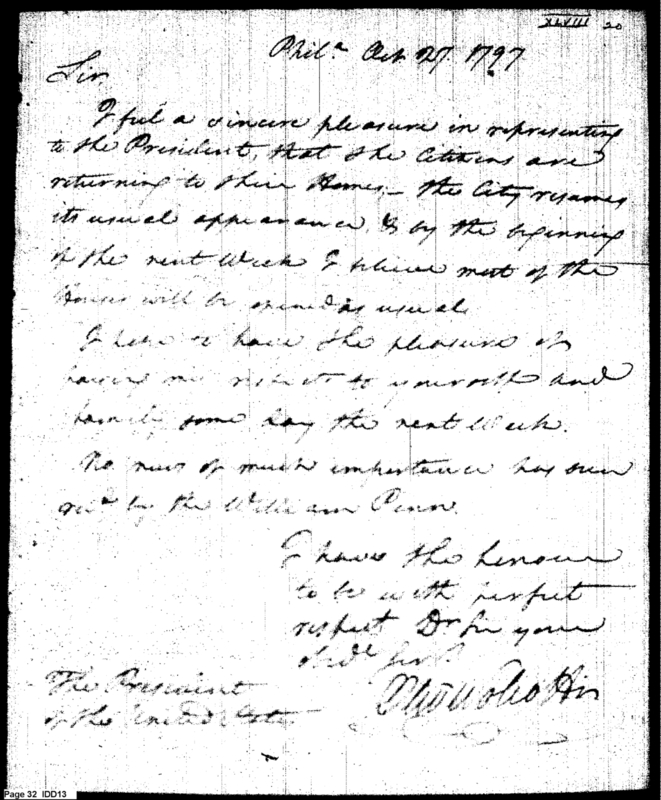 XLVIII 20
Phil.ª Oct. 27. 1797
Sir
I feel a sincere pleasure in representing
to the President, that the Citizens are
returning to their Homes – the City resumes
its usual appearance, & by the beginning
of the next Week I believe most of the
Houses will be opened as usual.
I hope to have the pleasure of
paying my respects to yourself and
family some day the next Week.
No news of much importance has been
rec.d by the William Penn.
I have the honour
to be with perfect
respect Dr Sir your
obed.t Serv.t
The President
of the United States
Page 32 IDD13